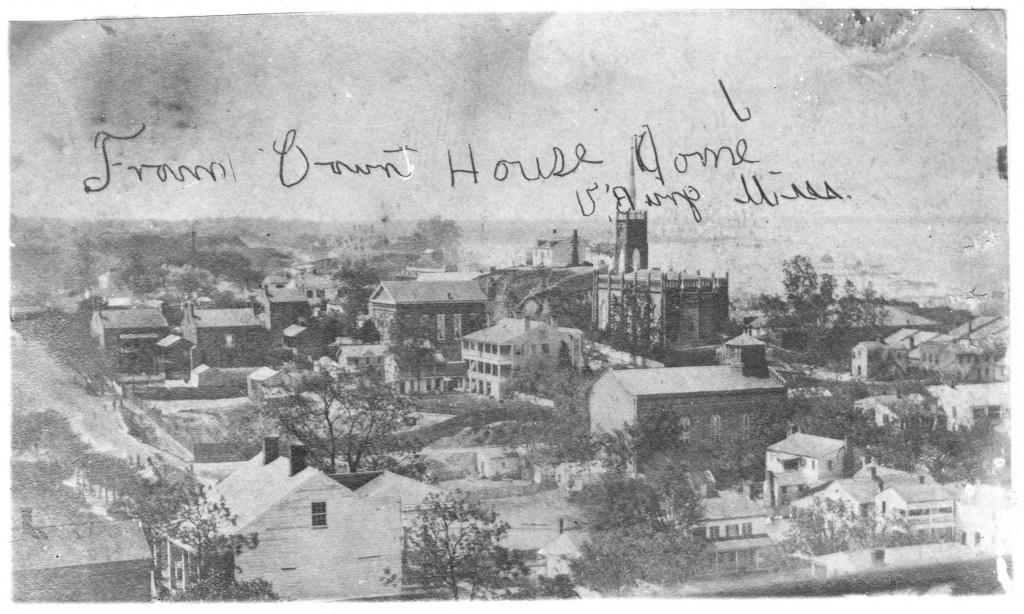 From Court House Dome
V'Burg Miss.